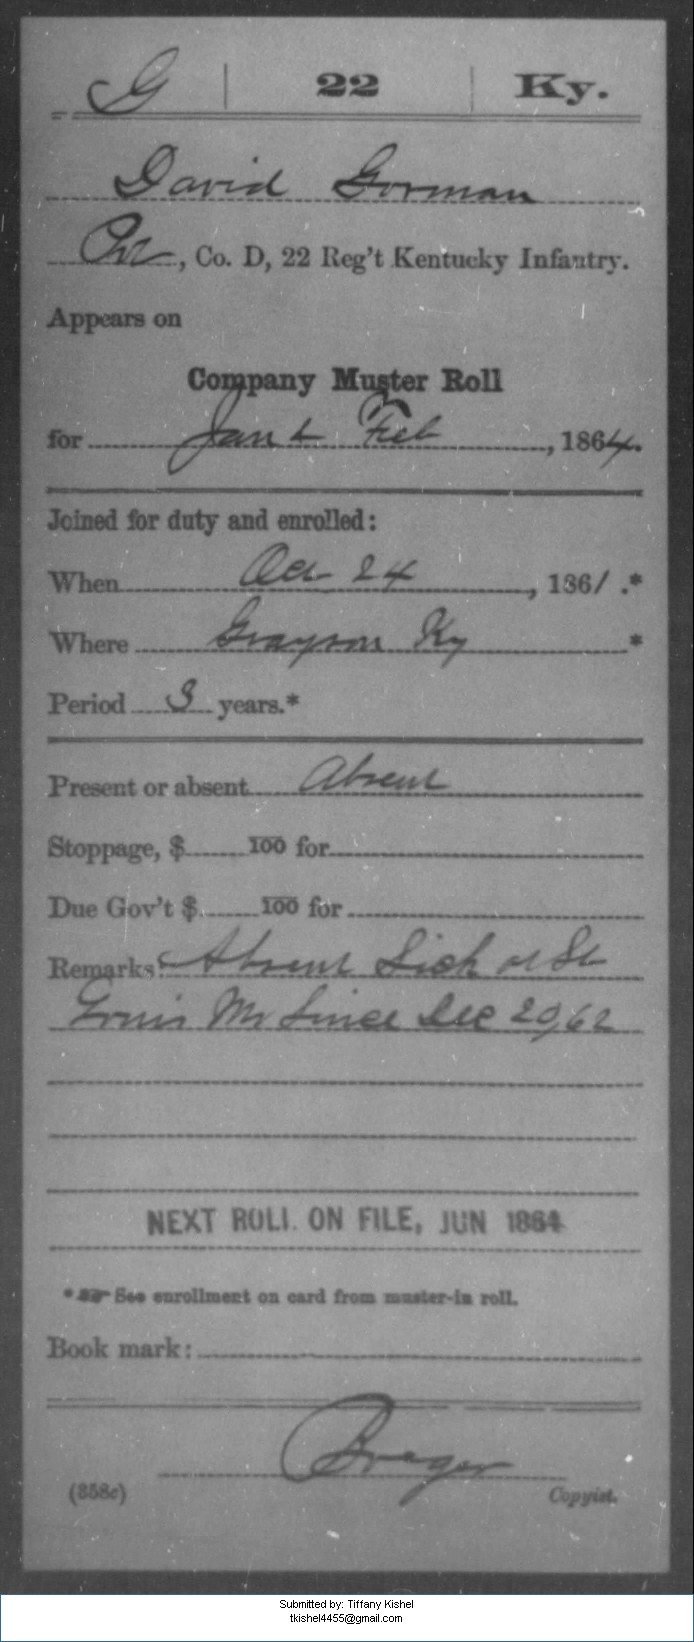 G | 22 | Ky.
David Gorman
Pvt, Co. D, 22 Reg't Kentucky Infantry.
Appears on
Company Muster Roll
for Jan & Feb, 1864.
Joined for duty and enrolled:
When Oct 24, 1861.*
Where Grayson Ky *
Period 3 years.*
Present or absent Absent
Stoppage, $ 100 for
Due Gov't $ 100 for
Remarks: Absent Sick at St
Louis Mo Since Dec 20, 62
NEXT ROLL ON FILE, JUN 1864
* See enrollment on card from muster-in roll.
Book mark:
(358c) Copyist.
Submitted by: Tiffany Kishel
tkishel4455@gmail.com